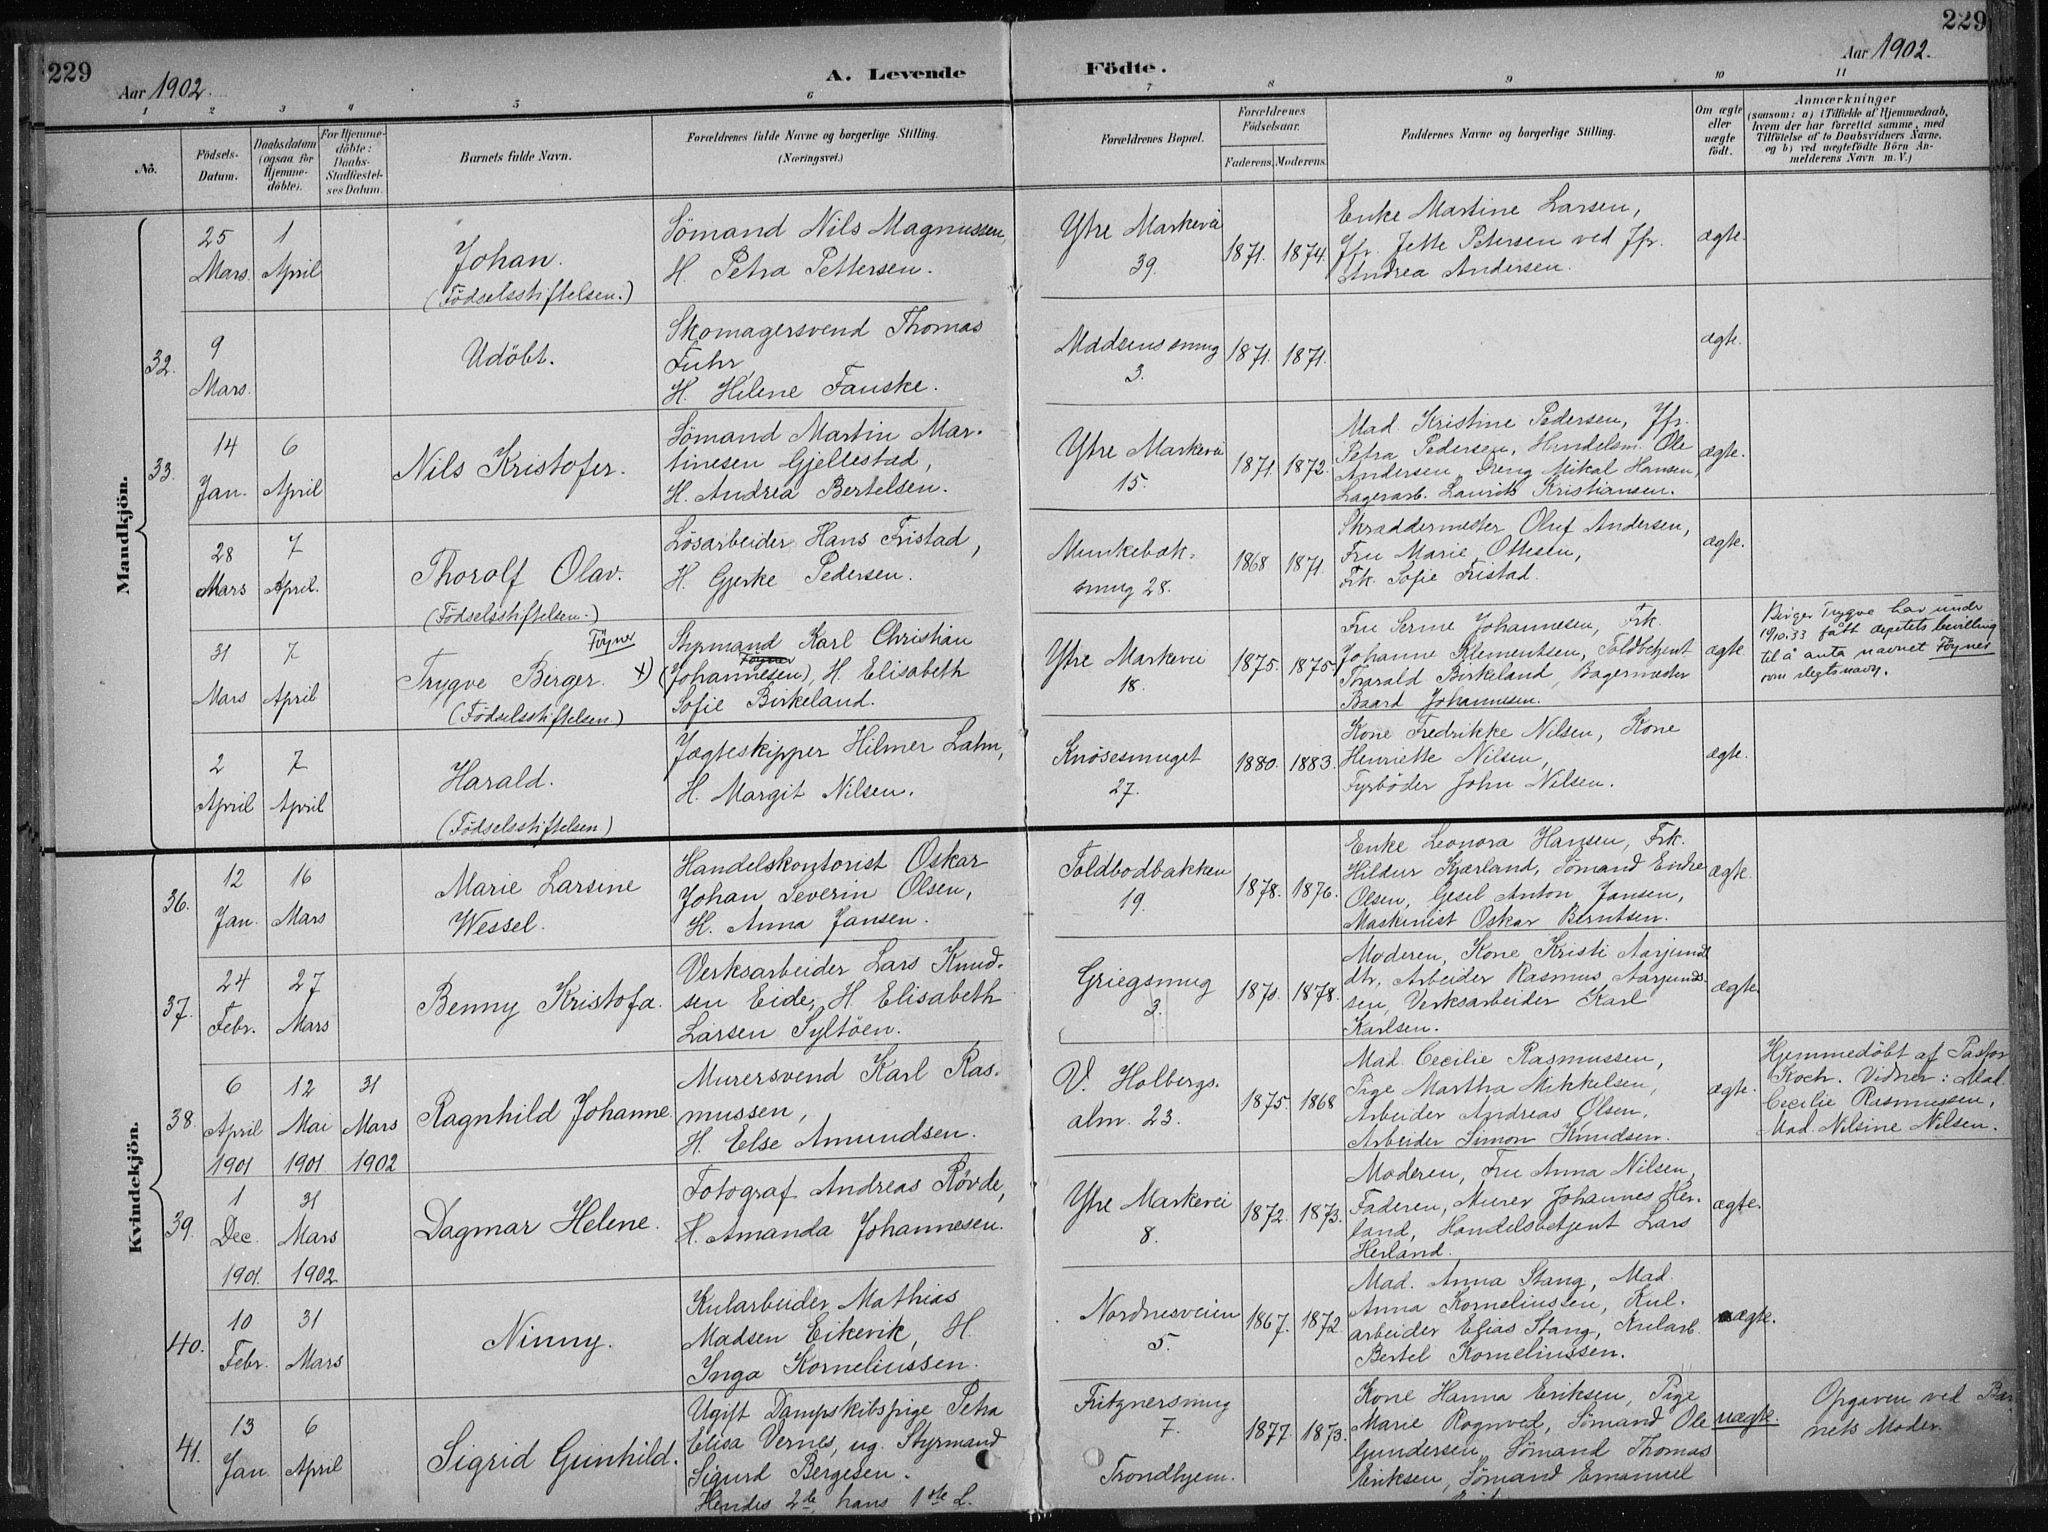 229
Aar 1902.
A. Levende
Födte.
Aar 1902.
229
1 2 3 4 5 6 7 8 9 10 11
No.
Födsels-
Datum.
Daabsdatum
(ogsaa for
Hjemme-
döbte).
For Hjemme-
döbte:
Daabs-
Stadfæstel-
ses Datum.
Barnets fulde Navn.
Forældrenes fulde Navne og borgerlige Stilling.
(Næringsvei.)
Forældrenes Bopæl.
Forældrenes
Födselsaar.
Faderens. Moderens.
Faddernes Navne og borgerlige Stilling.
Om ægte
eller
uægte
født.
Anmærkninger
(saasom: a) i Tilfælde af Hjemmedaab,
hvem der har forrettet samme, med
Tilföielse af to Daabsvidners Navne,
og b) ved uægtefödte Börn An-
melderens Navn m. V.)
Mandkjön.
25 Mars. 1 April
Johan.
(Födselsstiftelsen.)
Sömand Nils Magnussen,
H. Petra Pettersen.
Ytre Markevei
39.
1871. 1874.
Enke Martine Larsen,
Jfr. Jette Petersen ved Jfr.
Andrea Andersen.
ægte.
32.
9 Mars.
Udöbt.
Skomagersvend Thomas
Fuhr,
H. Helene Fauske.
Madsensmug
3.
1871. 1871.
ægte.
33.
14 Jan. 6 April
Nils Kristofer.
Sömand Martin Mar-
tinesen Gjellestad,
H. Andrea Bertelsen.
Ytre Markevei
15.
1871. 1872.
Mad. Kristine Pedersen, Jfr.
Petra Pedersen, Handelsm. Ole
Andersen, Dreng Mikal Hansen,
Lagerarb. Laurits Kristiansen.
ægte.
28 Mars 7 April.
Thorolf Olav.
(Födselsstiftelsen.)
Lösarbeider Hans Fristad,
H. Gjerke Pedersen.
Munkebæk-
smug 28.
1868 1871.
Skræddermester Oluf Andersen,
Fru Marie Ottesen,
Frk. Sofie Fristad.
ægte.
31 Mars 7 April
Föyner
Trygve Birger. x)
(Födselsstiftelsen)
Styrmand Karl Christian
Föyner
(Johannesen), H. Elisabeth
Sofie Birkeland.
Ytre Markevei
18.
1875. 1875.
Fru Serine Johannesen, Frk.
Johanne Klementsen, Toldbetjent
Torarald Birkeland, Bagermester
Baard Johannesen.
ægte
Birger Trygve har under
19/10.33 fått deptets bevilling
til å anta navnet Föynes
som slegtsnavn.
2 April 7 April
Harald.
(Födselsstiftelsen)
Jægteskipper Hilmer Lahm,
H. Margit Nilsen.
Knösesmuget
27.
1880. 1883.
Kone Fredrikke Nilsen, Kone
Henriette Nilsen,
Fyrböder John Nilsen.
ægte.
Kvindekjön.
36.
12 Jan. 16 Mars
Marie Larsine
Wessel.
Handelskontorist Oskar
Johan Severin Olsen,
H. Anna Jansen.
Toldbodbakken
19.
1878. 1876.
Enke Leonora Hansen, Frk.
Hildur Kjærland, Sömand Endre
Olsen, Gesel Anton Jansen,
Maskinist Oskar Berntsen.
ægte.
37.
24 Febr. 27 Mars
Benny Kristofa.
Verksarbeider Lars Knud-
sen Eide, H. Elisabeth
Larsen Syltöen.
Griegsmug
3.
1871. 1878.
Moderen, Kone Kristi Aasmunds
dtr, Arbeider Rasmus Aasmunds-
sen, Verksarbeider Karl
Karlsen.
ægte.
38.
6 April 1901 12 Mai 1901 31 Mars 1902
Ragnhild Johanne
Murersvend Karl Ras-
mussen,
H. Else Amundsen.
V. Holbergs-
alm. 23.
1875. 1868
Mad. Cecilie Rasmussen,
Pige Martha Mikkelsen,
Arbeider Andreas Olsen,
Arbeider Simon Knudsen.
ægte.
Hjemmedöbt af Pastor
Koch. Vidner: Mad.
Cecilie Rasmussen,
Mad. Nilsine Nilsen.
39.
1 Dec. 1901. 31 Mars 1902
Dagmar Helene.
Fotograf Andreas Rövde,
H. Amanda Johannesen.
Ytre Markevei
8.
1872. 1873.
Moderen, Fru Anna Nilsen,
Faderen, Murer Johannes Her-
land, Handelsbetjent Lars
Herland.
ægte.
40.
10 Febr. 31 Mars
Ninny.
Kularbeider Mathias
Madsen Eikevik, H.
Inga Korneliussen.
Nordnesveien
5.
1867. 1872
Mad. Anna Stang, Mad.
Anna Korneliussen, Kul-
arbeider Elias Stang, Kularb.
Bertel Korneliussen.
ægte.
41.
13 Jan. 6 April
Sigrid Gunhild.
Ugift Dampskibspige Petra
Elisa Vernes, ug. Styrmand
Sigurd Bergesen.
Hendes 2de, hans 1ste L.
Fritznersmug
7.
Trondhjem.
1877. 1873.
Kone Hanna Eriksen, Pige
Marie Rognved, Sömand Ole
Gundersen, Sömand Thomas
Eriksen, Sömand Emanuel
uægte.
Opgaven ved Bar-
nets Moder.